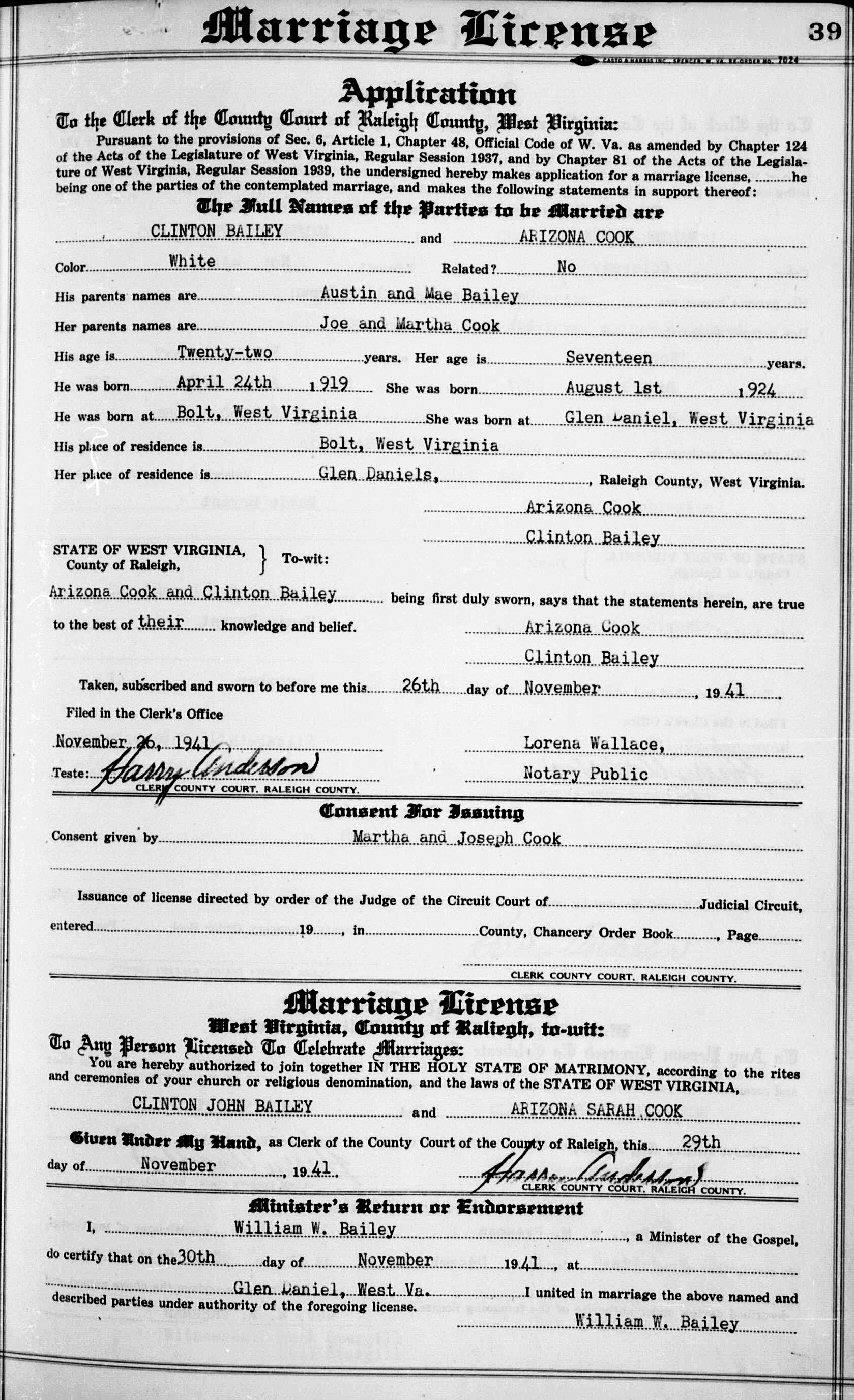 Marriage License
39
CASTO & HARRIS INC., SPENCER, W. VA. RE-ORDER NO. 7024
Application
To the Clerk of the County Court of Raleigh County, West Virginia:
Pursuant to the provisions of Sec. 6, Article 1, Chapter 48, Official Code of W. Va. as amended by Chapter 124
of the Acts of the Legislature of West Virginia, Regular Session 1937, and by Chapter 81 of the Acts of the Legisla-
ture of West Virginia, Regular Session 1939, the undersigned hereby makes application for a marriage license, ..........he
being one of the parties of the contemplated marriage, and makes the following statements in support thereof:
The Full Names of the Parties to be Married are
CLINTON BAILEY and ARIZONA COOK
Color White Related? No
His parents names are Austin and Mae Bailey
Her parents names are Joe and Martha Cook
His age is Twenty-two years. Her age is Seventeen years.
He was born April 24th 1919 She was born August 1st 1924
He was born at Bolt, West Virginia She was born at Glen Daniel, West Virginia
His place of residence is Bolt, West Virginia
Her place of residence is Glen Daniels, , Raleigh County, West Virginia.
Arizona Cook
Clinton Bailey
STATE OF WEST VIRGINIA,
County of Raleigh, } To-wit:
Arizona Cook and Clinton Bailey being first duly sworn, says that the statements herein, are true
to the best of their knowledge and belief. Arizona Cook
Clinton Bailey
Taken, subscribed and sworn to before me this 26th day of November , 1941
Filed in the Clerk's Office
November 26, 1941 Lorena Wallace,
Teste: Harry Anderson Notary Public
CLERK COUNTY COURT, RALEIGH COUNTY.
Consent For Issuing
Consent given by Martha and Joseph Cook
Issuance of license directed by order of the Judge of the Circuit Court of Judicial Circuit,
entered 19 , in County, Chancery Order Book , Page
CLERK COUNTY COURT, RALEIGH COUNTY.
Marriage License
West Virginia, County of Raliegh, to-wit:
To Any Person Licensed To Celebrate Marriages:
You are hereby authorized to join together IN THE HOLY STATE OF MATRIMONY, according to the rites
and ceremonies of your church or religious denomination, and the laws of the STATE OF WEST VIRGINIA,
CLINTON JOHN BAILEY and ARIZONA SARAH COOK
Given Under My Hand, as Clerk of the County Court of the County of Raleigh, this 29th
day of November , 1941. Harry Anderson
CLERK COUNTY COURT, RALEIGH COUNTY.
Minister's Return or Endorsement
I, William W. Bailey , a Minister of the Gospel,
do certify that on the 30th day of November 1941 , at
Glen Daniel, West Va. I united in marriage the above named and
described parties under authority of the foregoing license.
William W. Bailey